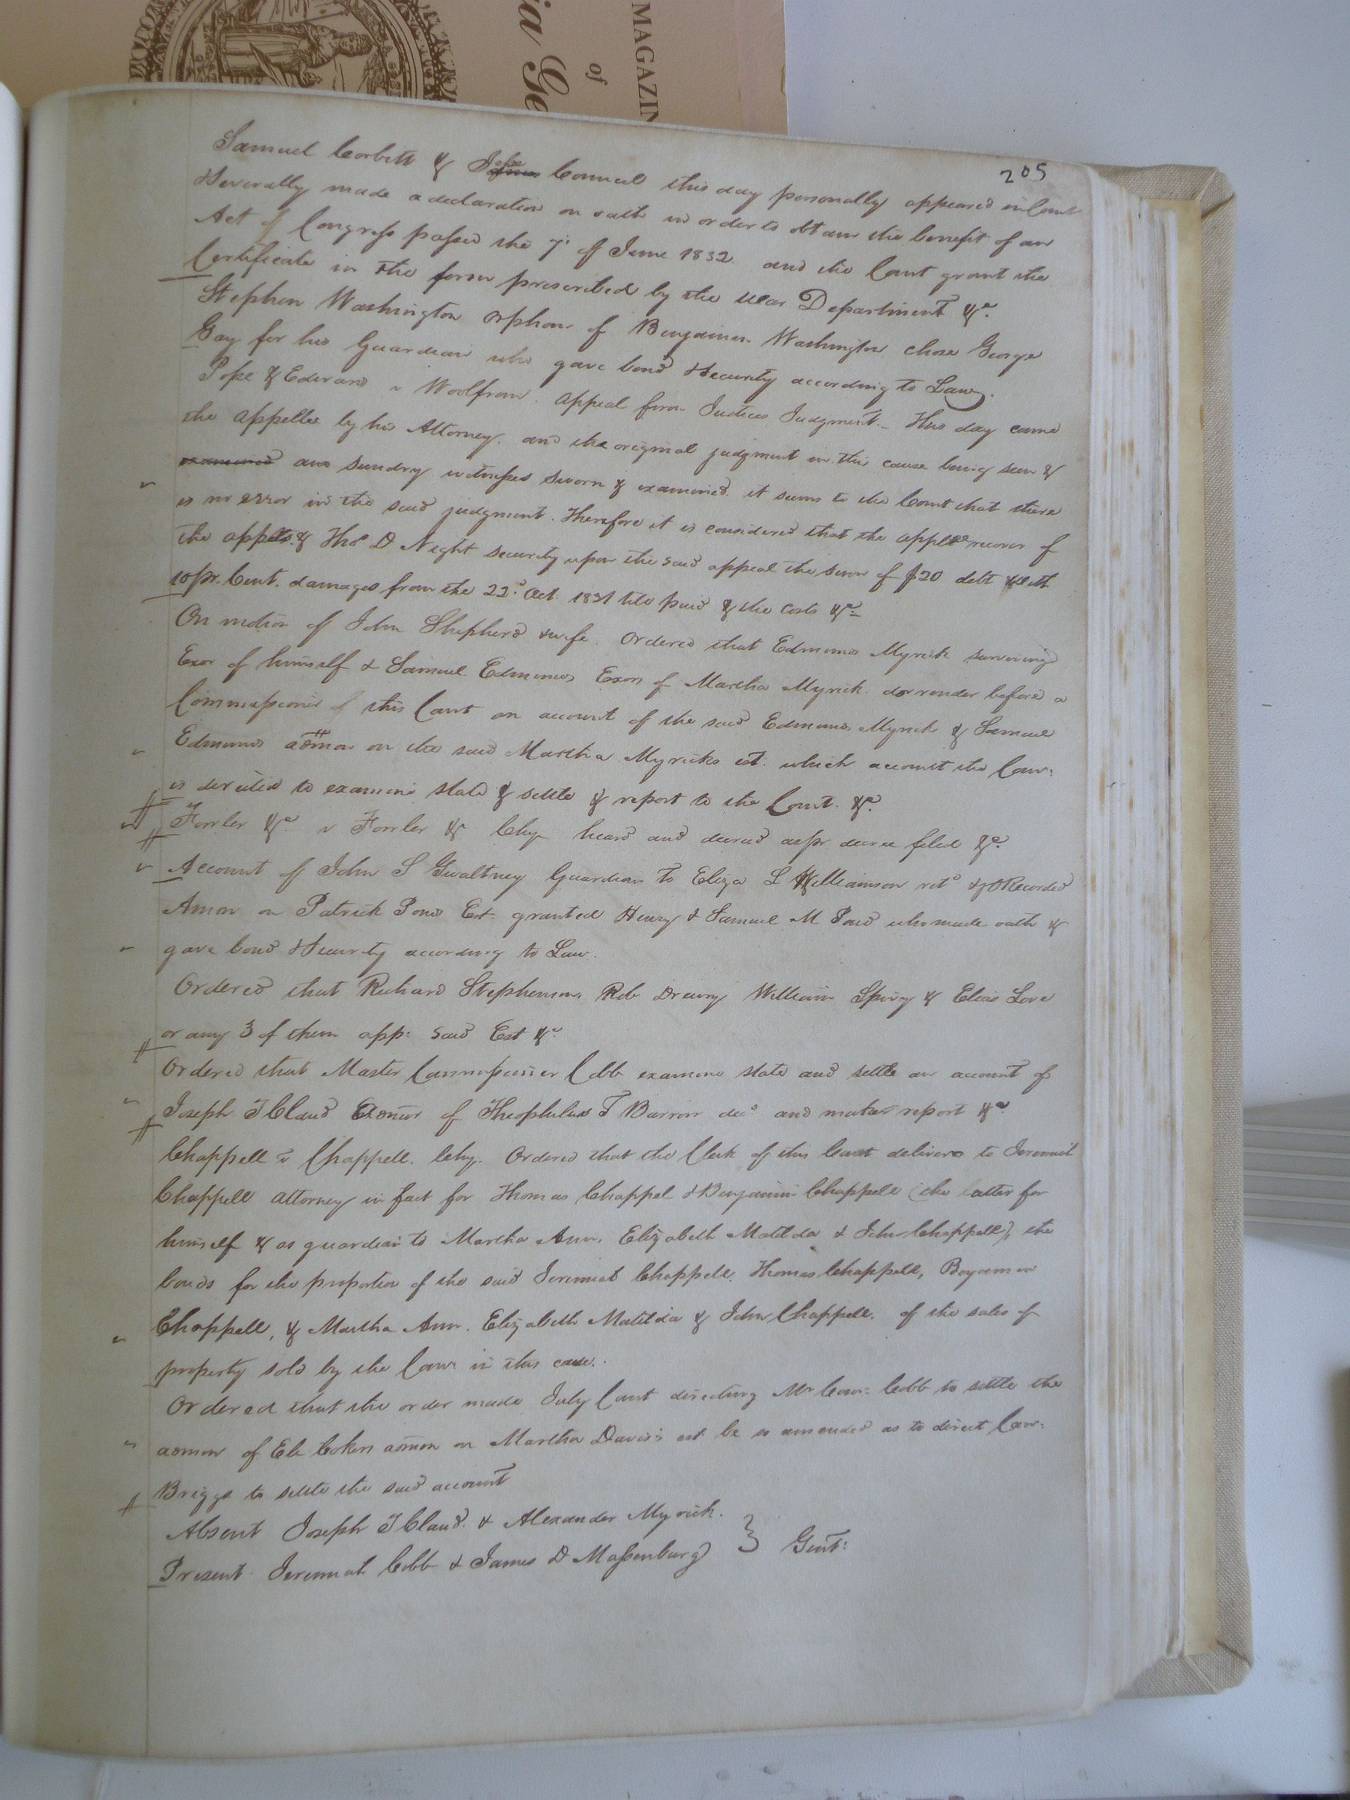 MAGAZIN
of
ia Ge
205
Samuel Corbett & John Council this day personally appeared in Court
& severally made a declaration on oath in order to obtain the benefit of an
Act of Congress passed the 7th of June 1832 and the Court grant the
Certificate in the form prescribed by the War Department &c.
Stephen Washington orphan of Benjamin Washington chose George
Gay for his Guardian who gave bond & security according to Law.
Pope & Edwards v Woolfrom. Appeal from Justices Judgment. This day came
the appellee by his Attorney and the original judgment in this cause being seen &
examined and sundry witnesses sworn & examined. it seems to the Court that there
is no error in the said judgment. Therefore it is considered that the applee recover of
the appts & Thos D Night security upon the said appeal the sum of $20 debt with
10 pr. Cent. damages from the 22d Oct. 1831 till paid & the costs &c
On motion of John Shepherd & wife. Ordered that Edmund Myrick surviving
Exor of himself & Samuel Edmunds Exors of Martha Myrick do render before a
Commissioner of this Court an account of the said Edmund Myrick & Samuel
Edmunds admon on the said Martha Myricks est. which account the Com:
is directed to examine state & settle & report to the Court. &c.
Fowler &c v Fowler &c Chy heard and decreed as pr decree filed &c.
Account of John S Gwaltney Guardian to Eliza L Williamson retd & O Recorded
Amon on Patrick Ponds Est. granted Henry & Samuel M Pond who made oath &
gave bond & Security according to Law.
Ordered that Richard Stephenson, Rob Drewry William Spivy & Elias Love
or any 3 of them app: said Est &c
Ordered that Master Commissioner Cobb examine state and settle an account of
Joseph T Claud Exonor of Theophilus T Barrow decd and make report &c
Chappell v Chappell. Chy. Ordered that the Clerk of this Court deliver to Jeremiah
Chappell attorney in fact for Thomas Chappel & Benjamin Chappell (the latter for
himself & as guardian to Martha Ann, Elizabeth Matilda & John Chappell) the
bonds for the proportion of the said Jeremiah Chappell, Thomas Chappell, Benjamin
Chappell, & Martha Ann. Elizabeth Matilda & John Chappell. of the sales of
property sold by the Com: in this case.
Ordered that the order made July Court directing Mr Com: Cobb to settle the
admon of Eli Cokers admon on Martha Davis's est be so amended as to direct Com:
Briggs to settle the said account
Absent Joseph T Claud. & Alexander Myrick.
Present Jeremiah Cobb & James D Massenburg } Gent: